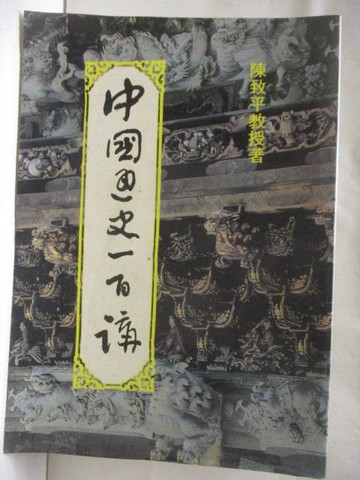 中國通史一百講
陳致平教授著